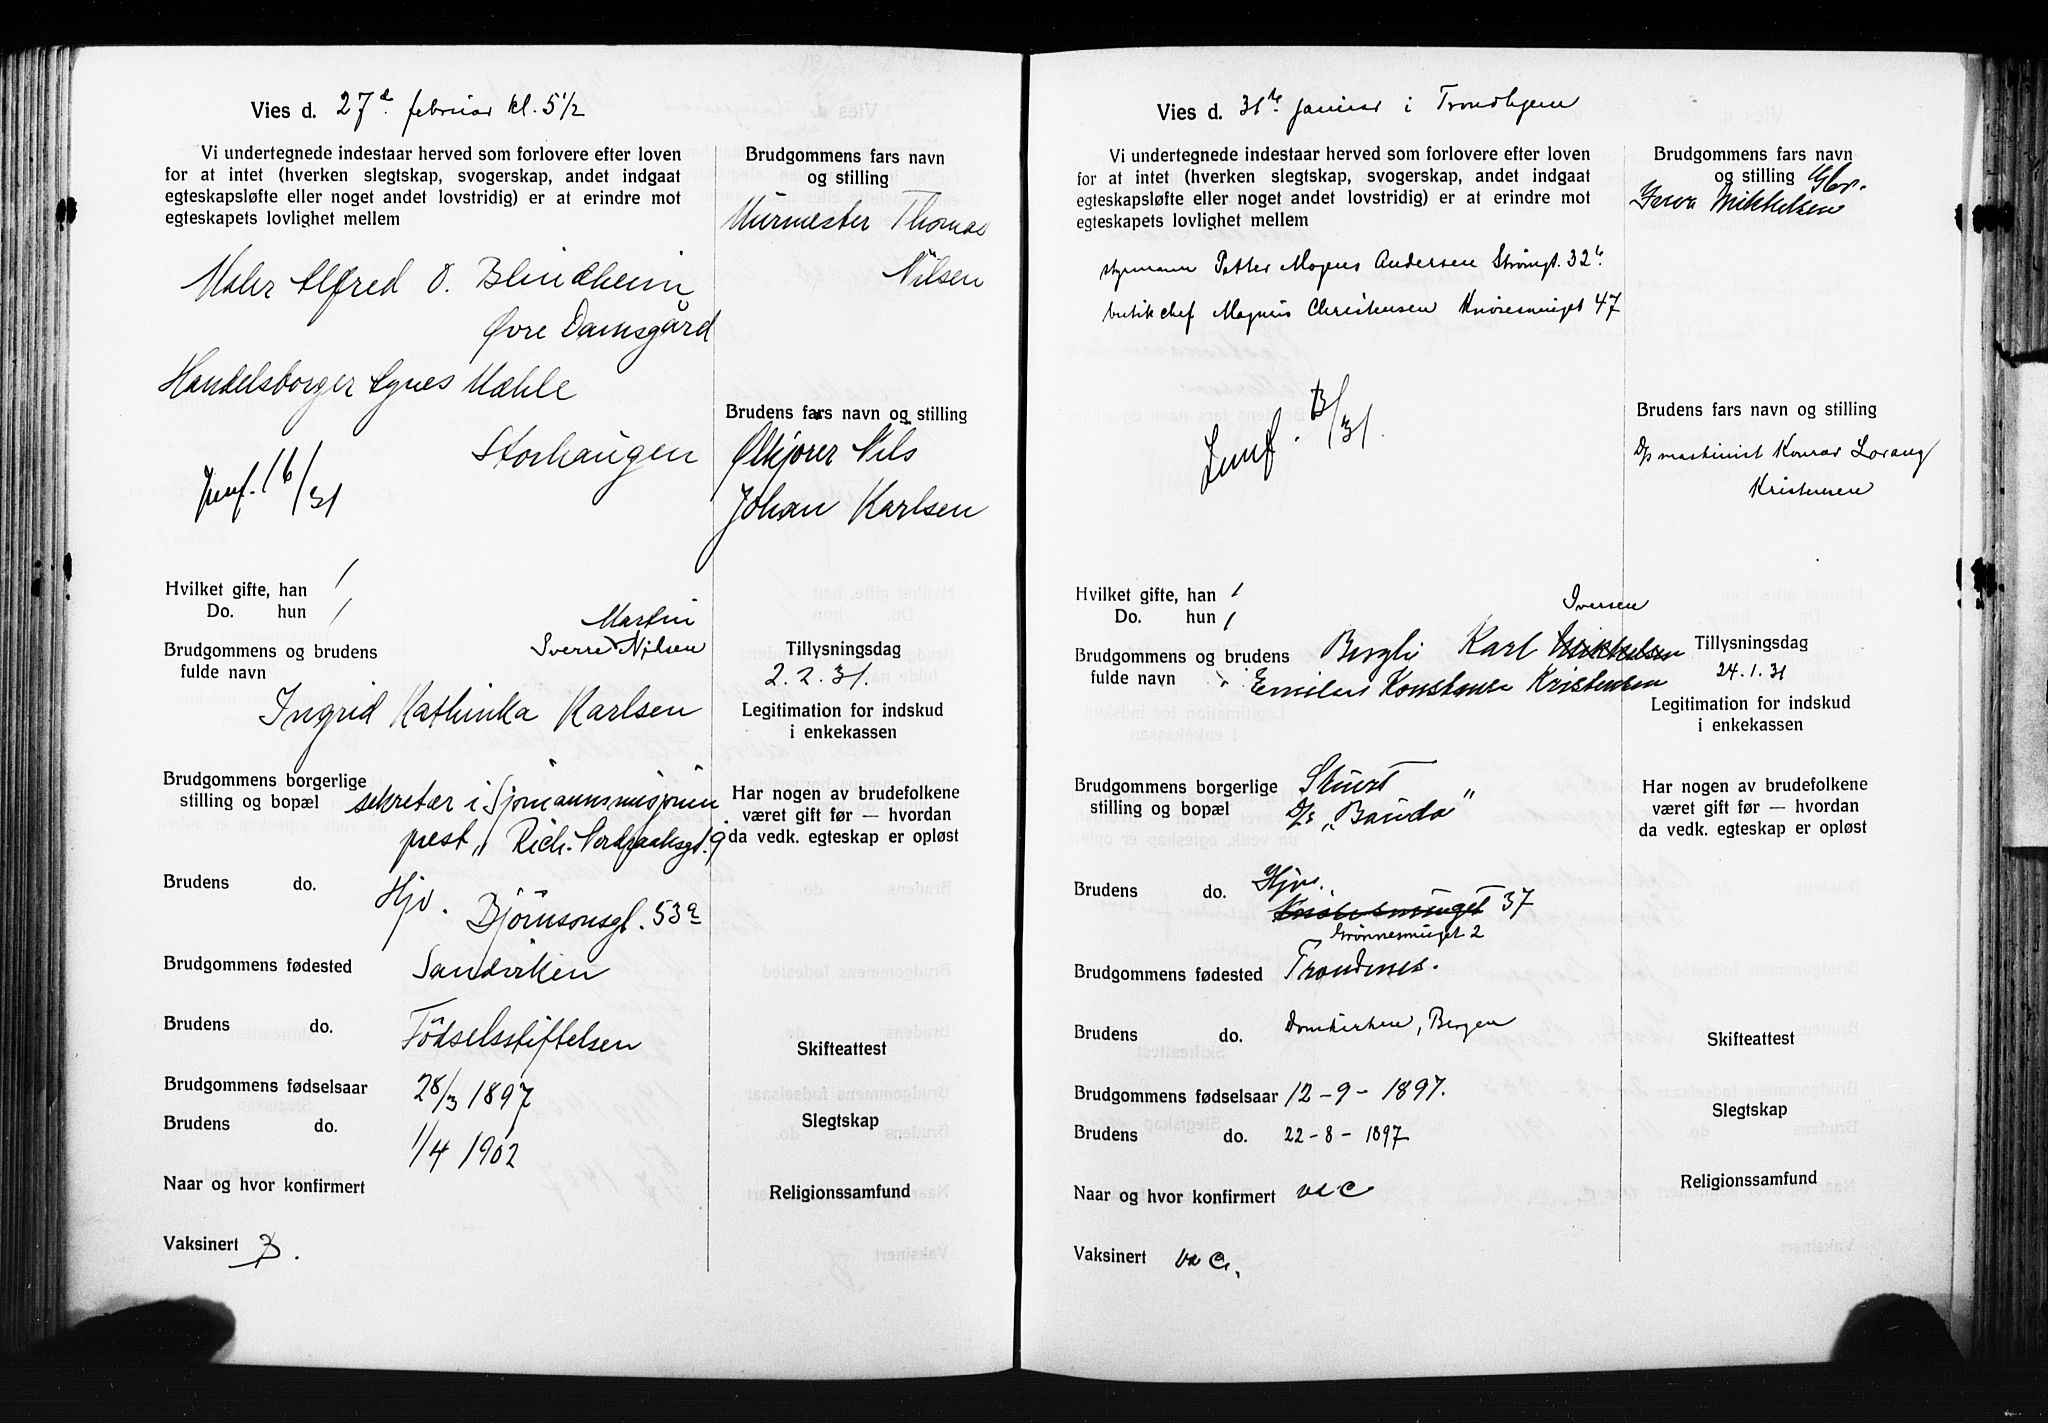 Vies d. 27de februar kl. 5 1/2
Vi undertegnede indestaar herved som forlovere efter loven
for at intet (hverken slegtskap, svogerskap, andet indgaat
egteskapsløfte eller noget andet lovstridig) er at erindre mot
egteskapets lovlighet mellem
Brudgommens fars navn
og stilling
Murmester Thomas
Nilsen
Maler Alfred O. Blindheim
Øvre Damsgård
Handelsborger Agnes Mæhle
Storhaugen
Junf. 16/31
Brudens fars navn og stilling
Ølkjører Nils
Johan Karlsen
Hvilket gifte, han 1
Do. hun 1
Martin
Brudgommens og brudens Sverre Nilsen
fulde navn
Ingrid Kathinka Karlsen
Tillysningsdag
2.2.31.
Legitimation for indskud
i enkekassen
Brudgommens borgerlige sekretær i Sjømannsmisjonen
stilling og bopæl prest, Rich. Nordraaksgt. 9
Har nogen av brudefolkene
været gift før — hvordan
da vedk. egteskap er opløst
Brudens do. Hjv. Bjørnsonsgt. 53a
Brudgommens fødested Sandviken
Brudens do. Födselsstiftelsen
Skifteattest
Brudgommens fødselsaar 28/3 1897
Brudens do. 1/4 1902
Slegtskap
Naar og hvor konfirmert
Religionssamfund
Vaksinert B.
Vies d. 31te januar i Trondhjem
Vi undertegnede indestaar herved som forlovere efter loven
for at intet (hverken slegtskap, svogerskap, andet indgaat
egteskapsløfte eller noget andet lovstridig) er at erindre mot
egteskapets lovlighet mellem
Brudgommens fars navn
og stilling Gbr.
Mikkelsen
styrmann Petter Mogens Andersen Strømgt. 32b
butikchef Magnus Christensen Knøsesmuget 47
Junf. B/31.
Brudens fars navn og stilling
D/s maskinist Konrad Lorang
Kristensen
Hvilket gifte, han 1
Do. hun 1
Iversen
Brudgommens og brudens Bergli Karl Mikkelsen
fulde navn Emilie Konstanse Kristensen
Tillysningsdag
24.1.31
Legitimation for indskud
i enkekassen
Brudgommens borgerlige Stuert
stilling og bopæl D/s "Bauda"
Har nogen av brudefolkene
været gift før — hvordan
da vedk. egteskap er opløst
Brudens do. Hjv.
Knøsesmuget 37
Grønnesmuget 2
Brudgommens fødested Trondenes.
Brudens do. Domkirken, Bergen
Skifteattest
Brudgommens fødselsaar 12-9-1897.
Brudens do. 22-8-1897
Slegtskap
Naar og hvor konfirmert
Religionssamfund
Vaksinert